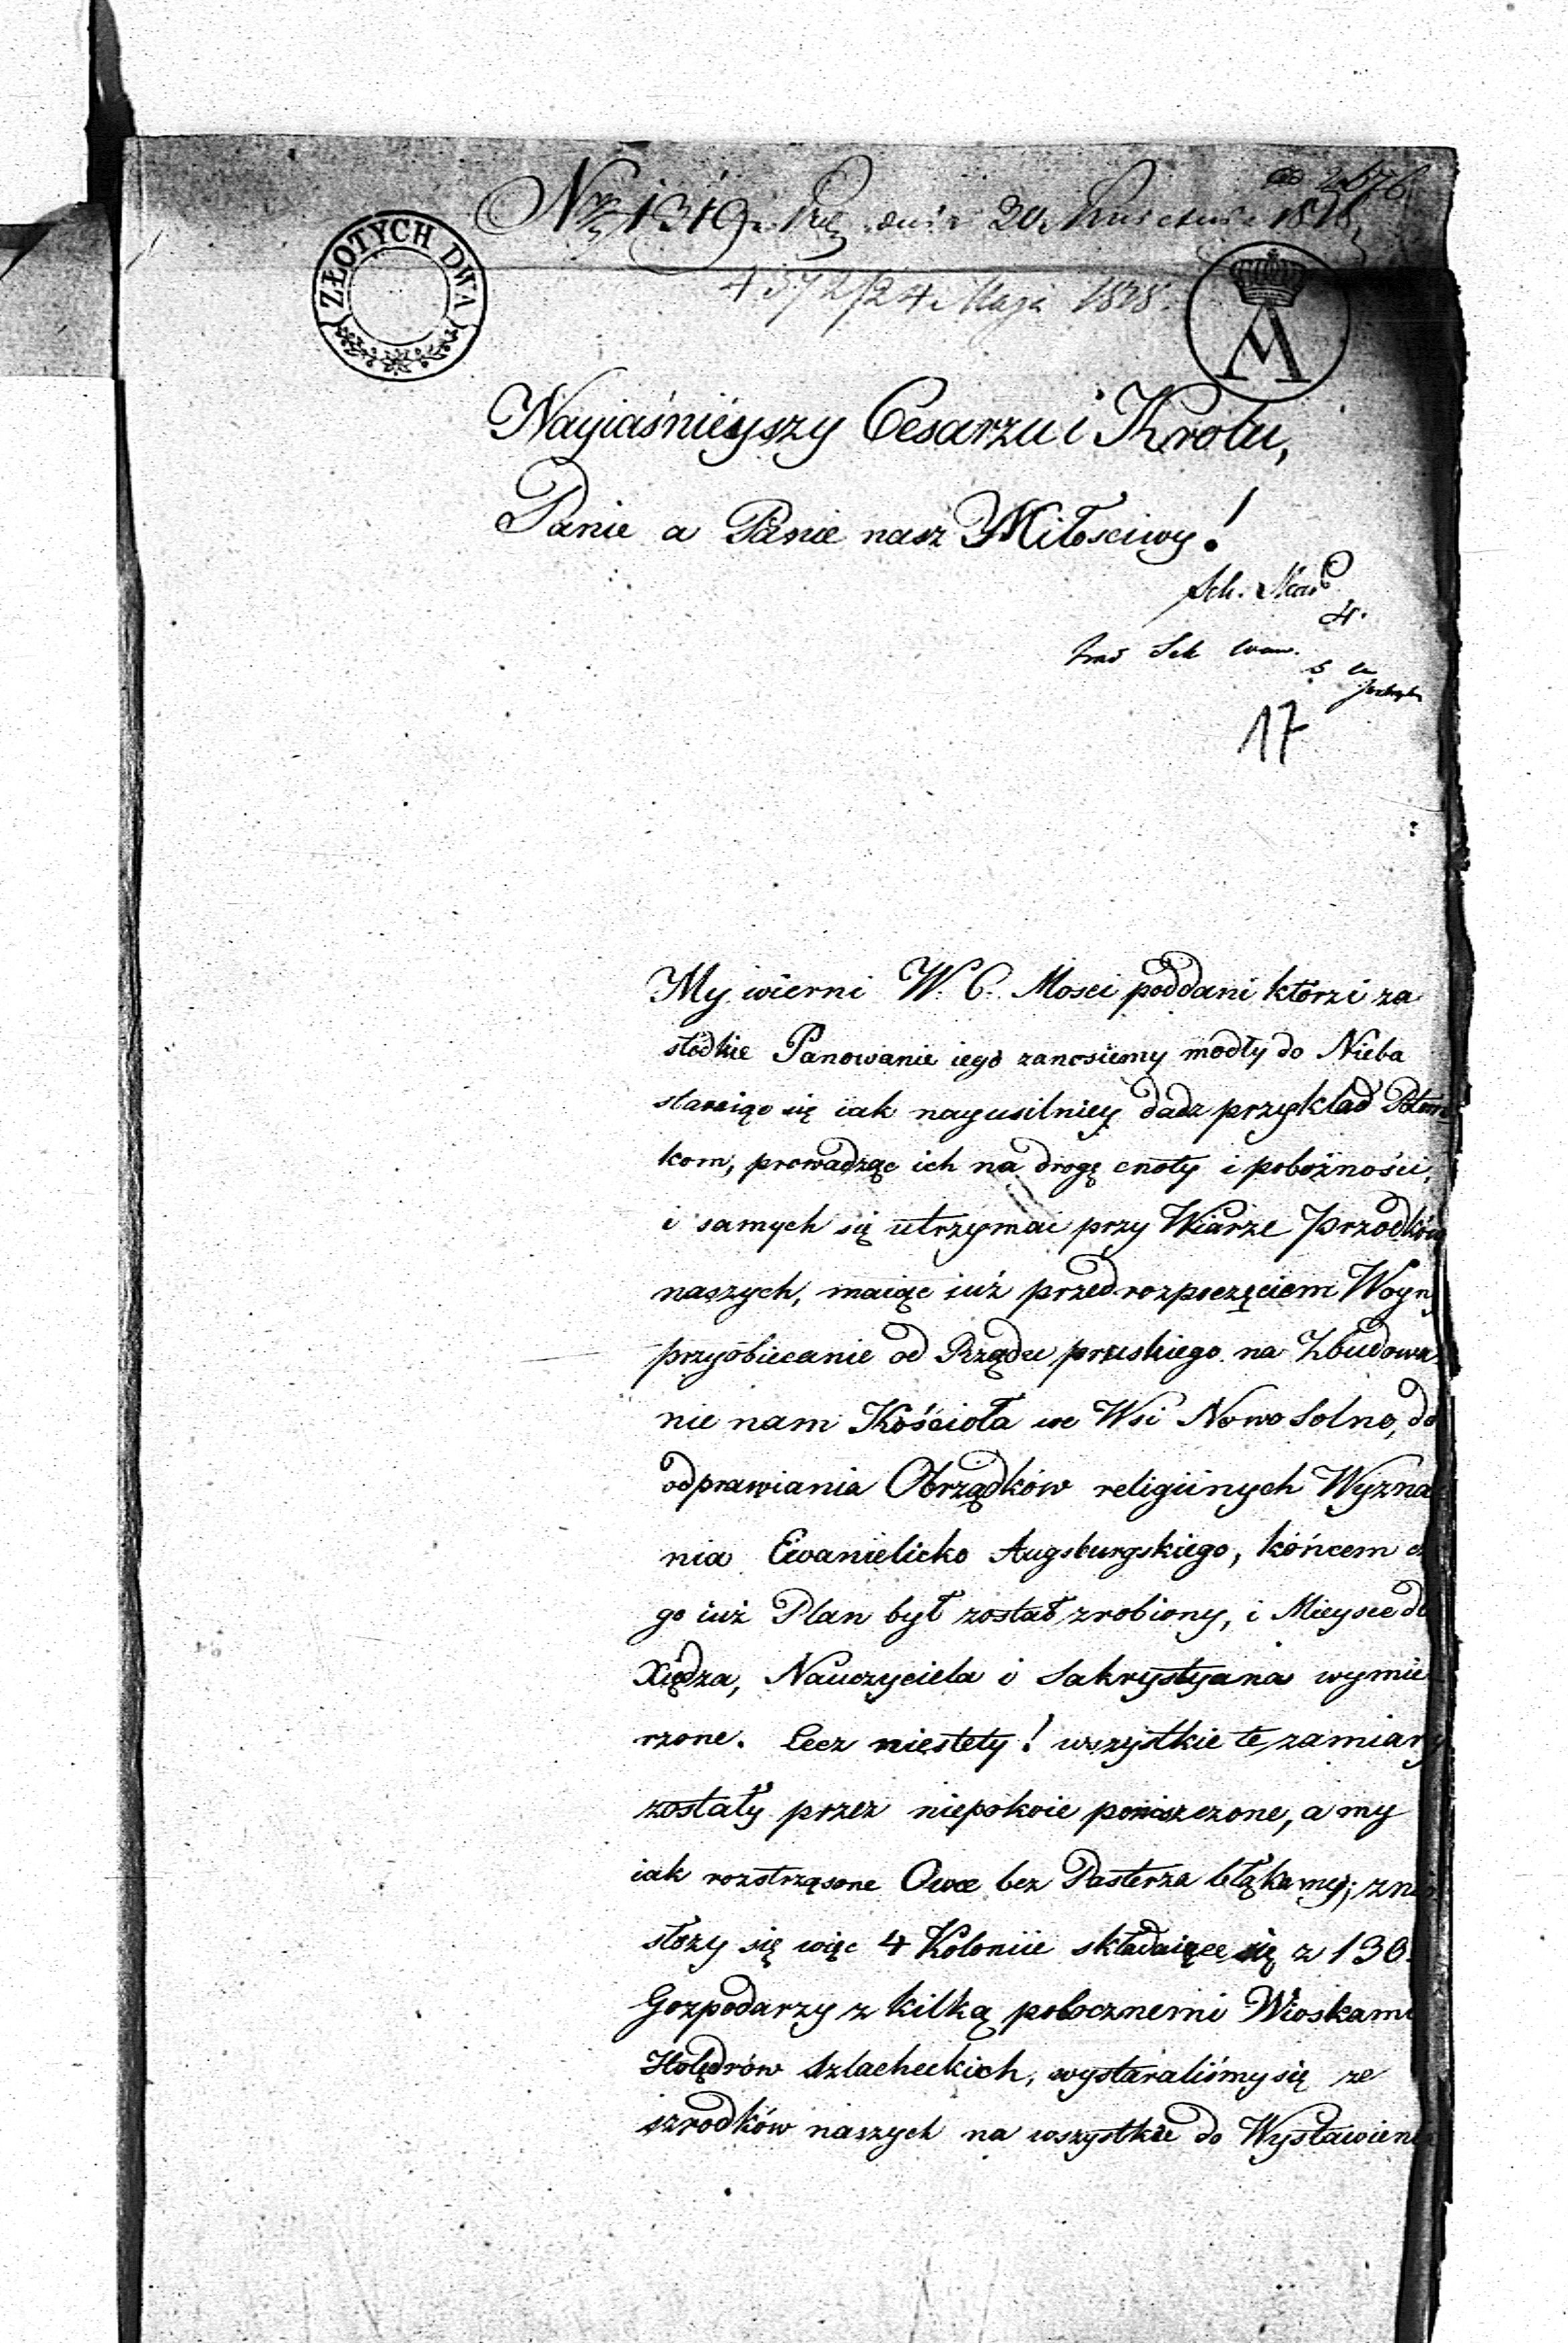 Nr 1319. dnia 30. Kwietnia 1818.
4372/24 Maja 1818.
ZŁOTYCH DWA
A
Nayiaśnieyszy Cesarzu i Krolu,
Panie a Panie nasz Miłosciwy!
17
My wierni W. C. Mosci poddani ktorzi za
słodkie Panowanie iego zanosiemy modły do Nieba
staraiąc się iak nayusilniey dadz przykład Potom
kom, prowadząc ich na drogę cnoty i pobożności,
i samych się utrzymai przy Wiarze Przodków
naszych, maiąc iuż przed rozpoczęciem Woyny
przyobiecanie od Rządu pruskiego na Zbudowa
nie nam Kościoła we Wsi Nowo Solno, do
odprawiania Obrządków religiinych Wyzna
nia Ewanielicko Augsburgskiego, końcem cze
go iuż Plan był został zrobiony, i Mieysce dla
Xiędza, Nauczyciela i Sakrystyana wymie
rzone. Lecz niestety! wszystkie te zamiary
zostały przez niepokoie poniszczone, a my
iak roztrząsone Owce bez Pasterza błąkamy;
słozy się więc 4 Koloniie składaiące się z 130.
Gozpodarzy z kilką pobocznemi Wioskami
Holędrów Szlacheckich, wystaraliśmy się ze
szrodków naszych na wszystkie do Wystawienia